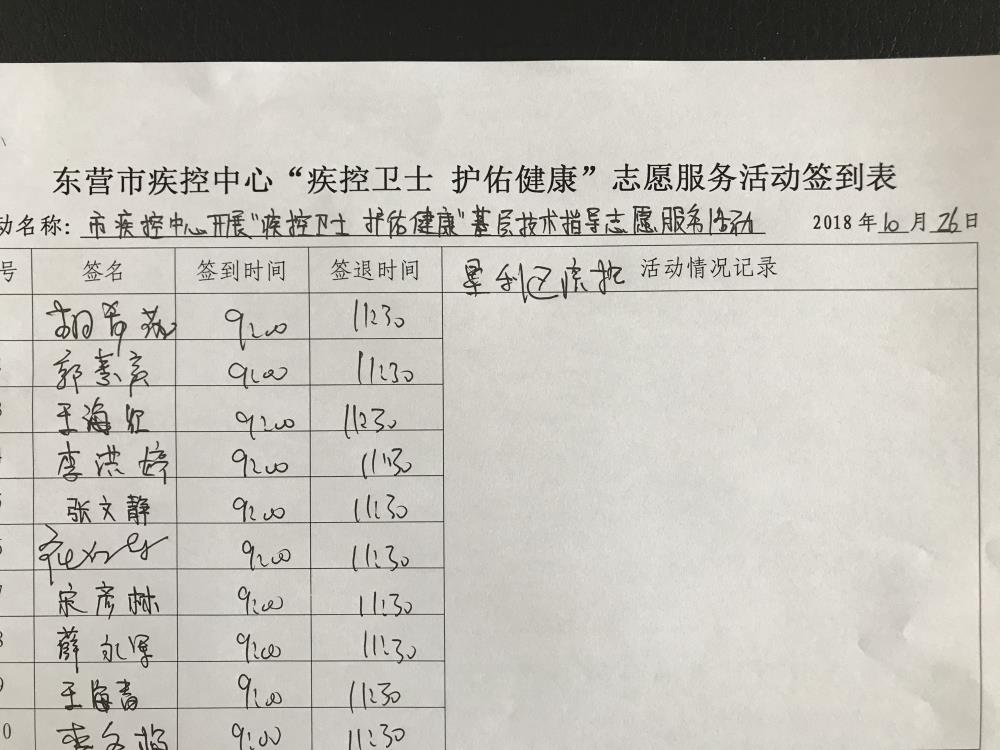 东营市疾控中心“疾控卫士 护佑健康”志愿服务活动签到表
动名称：市疾控中心开展“疾控卫士 护佑健康”基层技术指导志愿服务活动 2018年10月26日
号 签名 签到时间 签退时间 垦利区疾控 活动情况记录
9:00 11:30
郭素 9:00 11:30
3 王海红 9:00 11:30
4 李洪婷 9:00 11:30
5 张文静 9:00 11:30
6 9:00 11:30
7 宋彦林 9:00 11:30
8 薛永军 9:00 11:30
9 王海青 9:00 11:30
10 李冬梅 9:00 11:30